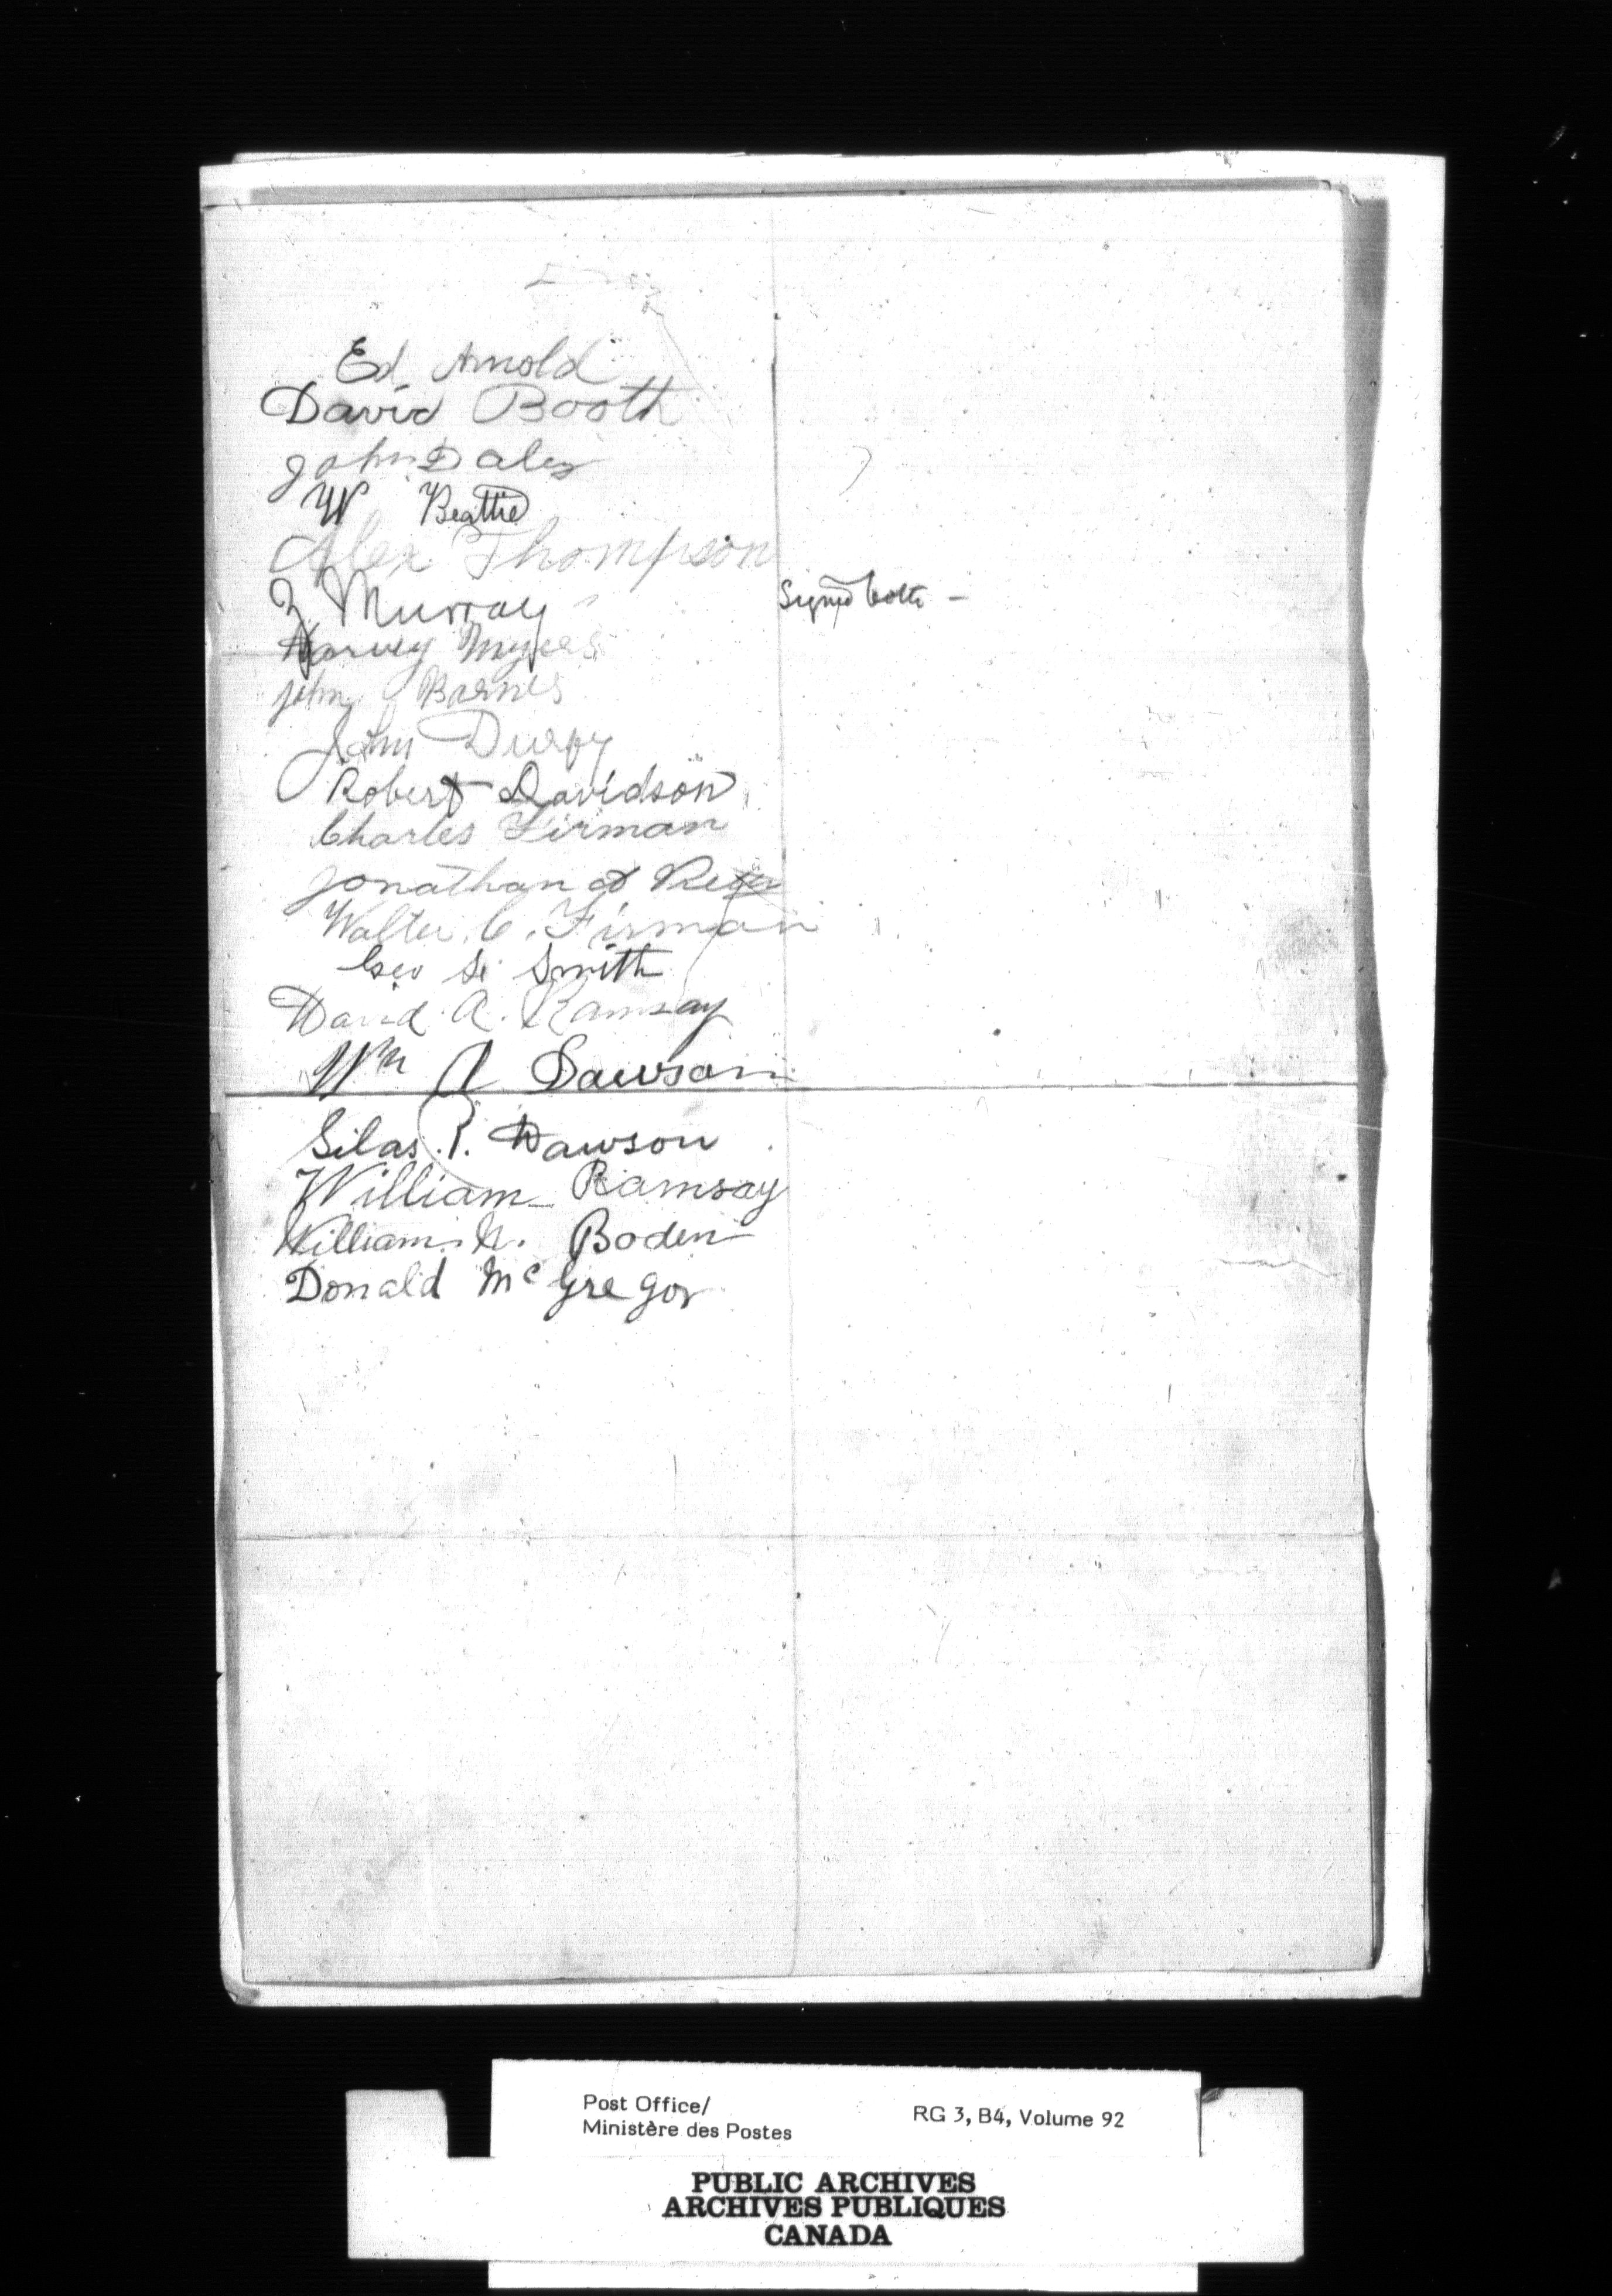 Ed Arnold
David Booth
John Daley
W Beattie
Alex Thompson
Z Murray Signed both -
Harvey Myers
John Barnes
John Durfy
Robert Davidson
Charles Firman
Jonathan
Walter C. Firman
Geo Smith
David A. Ramsay
Wm A Dawson
Silas P. Dawson
William Ramsay
William N. Boden
Donald McGregor
Post Office/ RG 3, B4, Volume 92
Ministère des Postes
PUBLIC ARCHIVES
ARCHIVES PUBLIQUES
CANADA